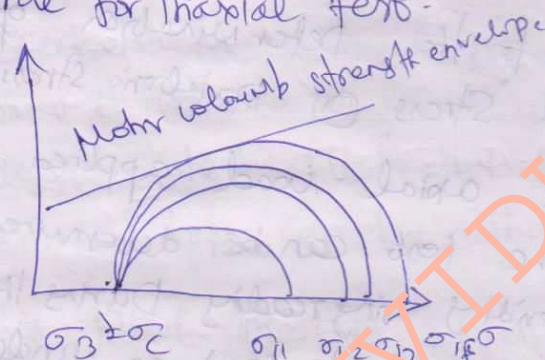 for Triaxial test.
Mohr coloumb strength envelope
σ3 = σc σ11 σ12 σ13 σ1f σ
VIDY